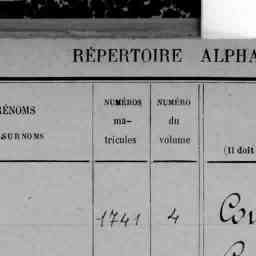 RÉPERTOIRE ALPHA
RÉNOMS
SURNOMS
NUMÉROS
ma-
tricules
NUMÉRO
du
volume
(Il doit
1741
4
Cou